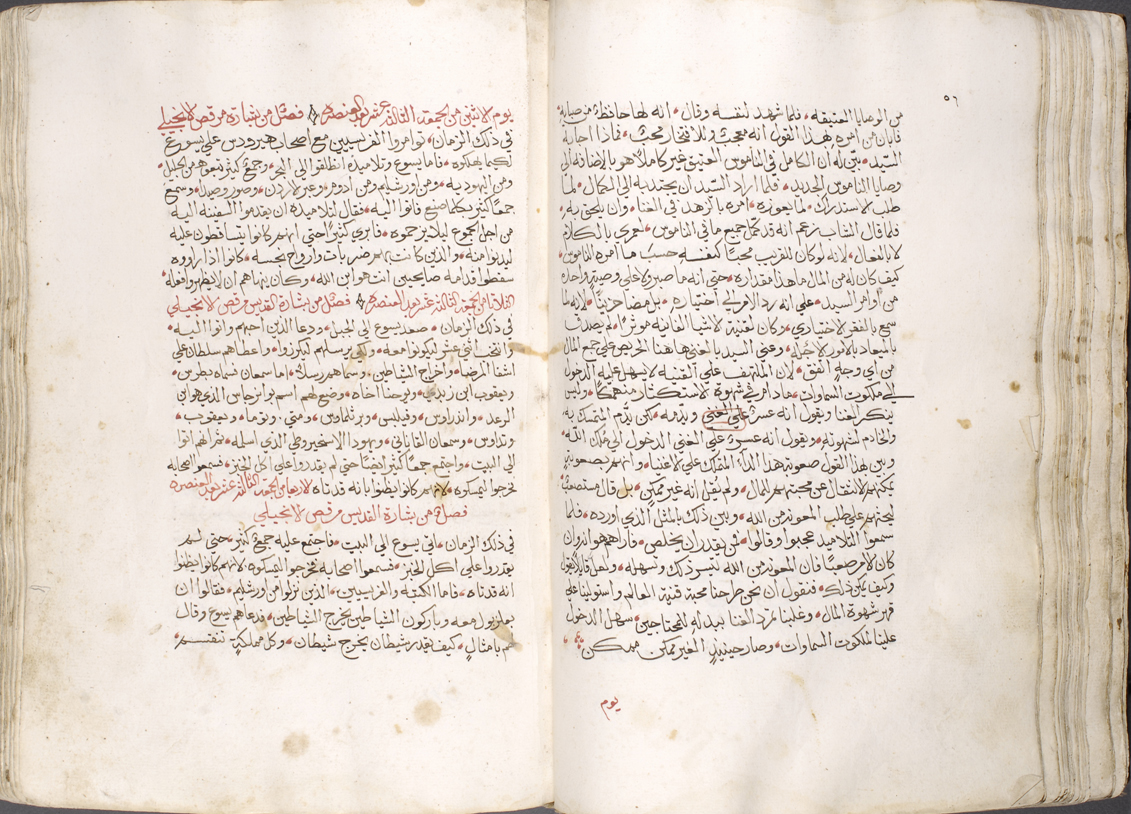 ٥٦
من الوصايا العتيقه. فلما شهد لنفسه وقال. انه لها حافظ من صبايه
فابان من امره هذا القول انه معجب وللافتخار محب. فماذا اجابه
السيد. بين له ان الكامل في الناموس العتيق غير كاملا هو بالاضافه الى
وصايا الناموس الجديد. فلما اراد السيد ان يجتذبه الى الكمال. لما
طلب الاستدراك. لما يعوزه. امره بالزهد في الغنا. وان يلحق به.
فلما قال الشاب بزعم انه قد كمل جميع ما في الناموس. لعمري بالكلام
لا بالفعال. لانه لو كان للقريب محبًا كنفسه حسب ما امره الناموس.
كيف كان له من المال ما هذا مقداره. حتى انه ما صبر ولا على وصيةٍ واحده
من اوامر السيد. على انه رد الامر الى اختياره. بل مضا حزينًا. لانه لما
سمع بالفقر الاختياري. وكان لقنية الاشيا الفانيه موثرًا. لم يصدق
بالميعاد بالامور الاجله. وعني السيد بالغني هاهنا الحريص على جمع المال
من اي وجهٍ اتفق. لان المتلهف على القنيه لا يسهل عليه الدخول
الى ملكوت السماوات. مادام في شهوة الاستكثار منهمكًا. وليس
ينكر الغنا ويقول انه عسرٌ على الغني ويذمه. لكن يذم المتمسك به
والخادم لشهوته. ويقول انه عسرٌ على الغني الدخول الى ملك الله.
وبين بهذا القول صعوبة هذا الدآء المتملك على الاغنيا. وانهم بصعوبةٍ
يمكنهم الانتقال عن محبتهم للمال. ولم يقل انه غير ممكن. بل قال مستصعب
ليحثهم على طلب المعونه من الله. وبين ذلك بالمثل الذي اورده. فلما
سمعوا التلاميذ عجبوا وقالوا. فمن يقدر ان يخلص. فاراهم هو انه وان
كان الامر صعبًا فان المعونه من الله تيسر ذلك وتسهله. ولعل قايلًا يقول
وكيف يكن ذلك. فنقول ان نحن طرحنا محبة قنية العالم واستولينا على
قهر شهوة المال. وغلبنا تمرد الغنا ببذله للمحتاجين. سهل الدخول
علينا لملكوت السماوات. وصار حينيذٍ الغير ممكن ممكن
يوم
يوم الاثنين من الجمعه الثالثة عشر بعد العنصره فصل من بشارة مرقص الانجيلي
في ذلك الزمان. توامروا الفريسيين مع اصحاب هيرودس على يسوع
لكيما يهلكوه. فاما يسوع وتلاميذه انطلقوا الى البحر. وجمعٌ كثير تبعوه من الجليل
ومن اليهوديه. ومن اورشليم ومن ادوم. وعبر الاردن. وصور وصيدا. وسمع
جمعًا كثير بكلما صنع فاتوا اليه. فقال لتلاميذه ان يقدموا السفينه اليه
من اجل الجموع ليلا يزحموه. فابرى كثيرًا حتى انهم كانوا يتساقطون عليه
ليدنوا منه. والذين كانت بهم ضربات وارواح نجسه. كانوا اذا راووه
سقطوا قدامه صايحين انت هو ابن الله. وكان ينهاهم ان لا يظهروا فعله
الثلاثا من الجمعه الثالثة عشر بعد العنصره فصل من بشارة القديس مرقص الانجيلي
في ذلك الزمان. صعد يسوع الى الجبل. ودعا الذين احبهم واتوا اليه.
وانتخب اثني عشر ليكونوا معه. ولكي يرسلهم ليكرزوا. واعطاهم سلطان على
اشفا المرضا. واخراج الشياطين. وسماهم رسلًا. اما سمعان سماه بطرس.
ويعقوب ابن زبدي. ويوحنا اخاه. وضع لهم اسم بوانرجاس الذي هو ابن
الرعد. واندراوس. وفيلبس. وبرتلماوس. ومتى. وتوما. ويعقوب.
وتداوس. وسمعان القاناني. ويهودا الاسخريوطي الذي اسلمه. ثم انهم اتوا
الى البيت. واجتمع جمعًا كثير ايضًا حتى لم يقدروا على اكل الخبز. فسمعوا اصحابه
فخرجوا ليمسكوه. لانهم كانوا يظنوا بانه قد تاه الاربعا من الجمعه الثالثة عشر بعد العنصره
فصلٌ من بشارة القديس مرقص الانجيلي
في ذلك الزمان. اتى يسوع الى البيت. فاجتمع عليه جمعٌ كثير. حتى لم
يقدروا على اكل الخبز. فسمعوا اصحابه فخرجوا ليمسكوه. لانهم كانوا يظنوا
انه قد تاه. فاما الكتبه والفريسيين. الذين نزلوا من اورشليم. فقالوا ان
بعلزبول معه وباركون الشياطين يخرج الشياطين. فدعاهم يسوع وقال
لهم بامثالٍ. كيف يقدر شيطان يخرج شيطان. وكل مملكةٍ تنقسم